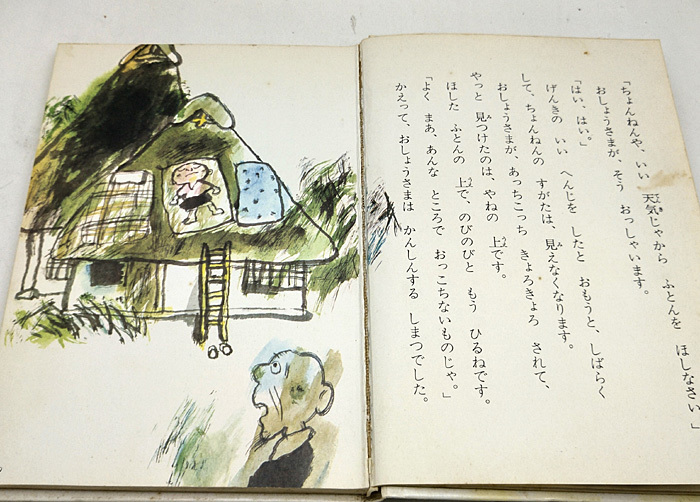 「ちょんねんや、いい 天気じゃから ふとんを ほしなさい。」
おしょうさまが、そう おっしゃいます。
「はい、はい。」
げんきの いい へんじを したと おもうと、しばらく
して、ちょんねんの すがたは、見えなくなります。
おしょうさまが、あっちこっち きょろきょろ されて、
やっと 見つけたのは、やねの 上です。
ほした ふとんの 上で、のびのびと もう ひるねです。
「よく まあ、あんな ところで おっこちないものじゃ。」
かえって、おしょうさまは かんしんする しまつでした。